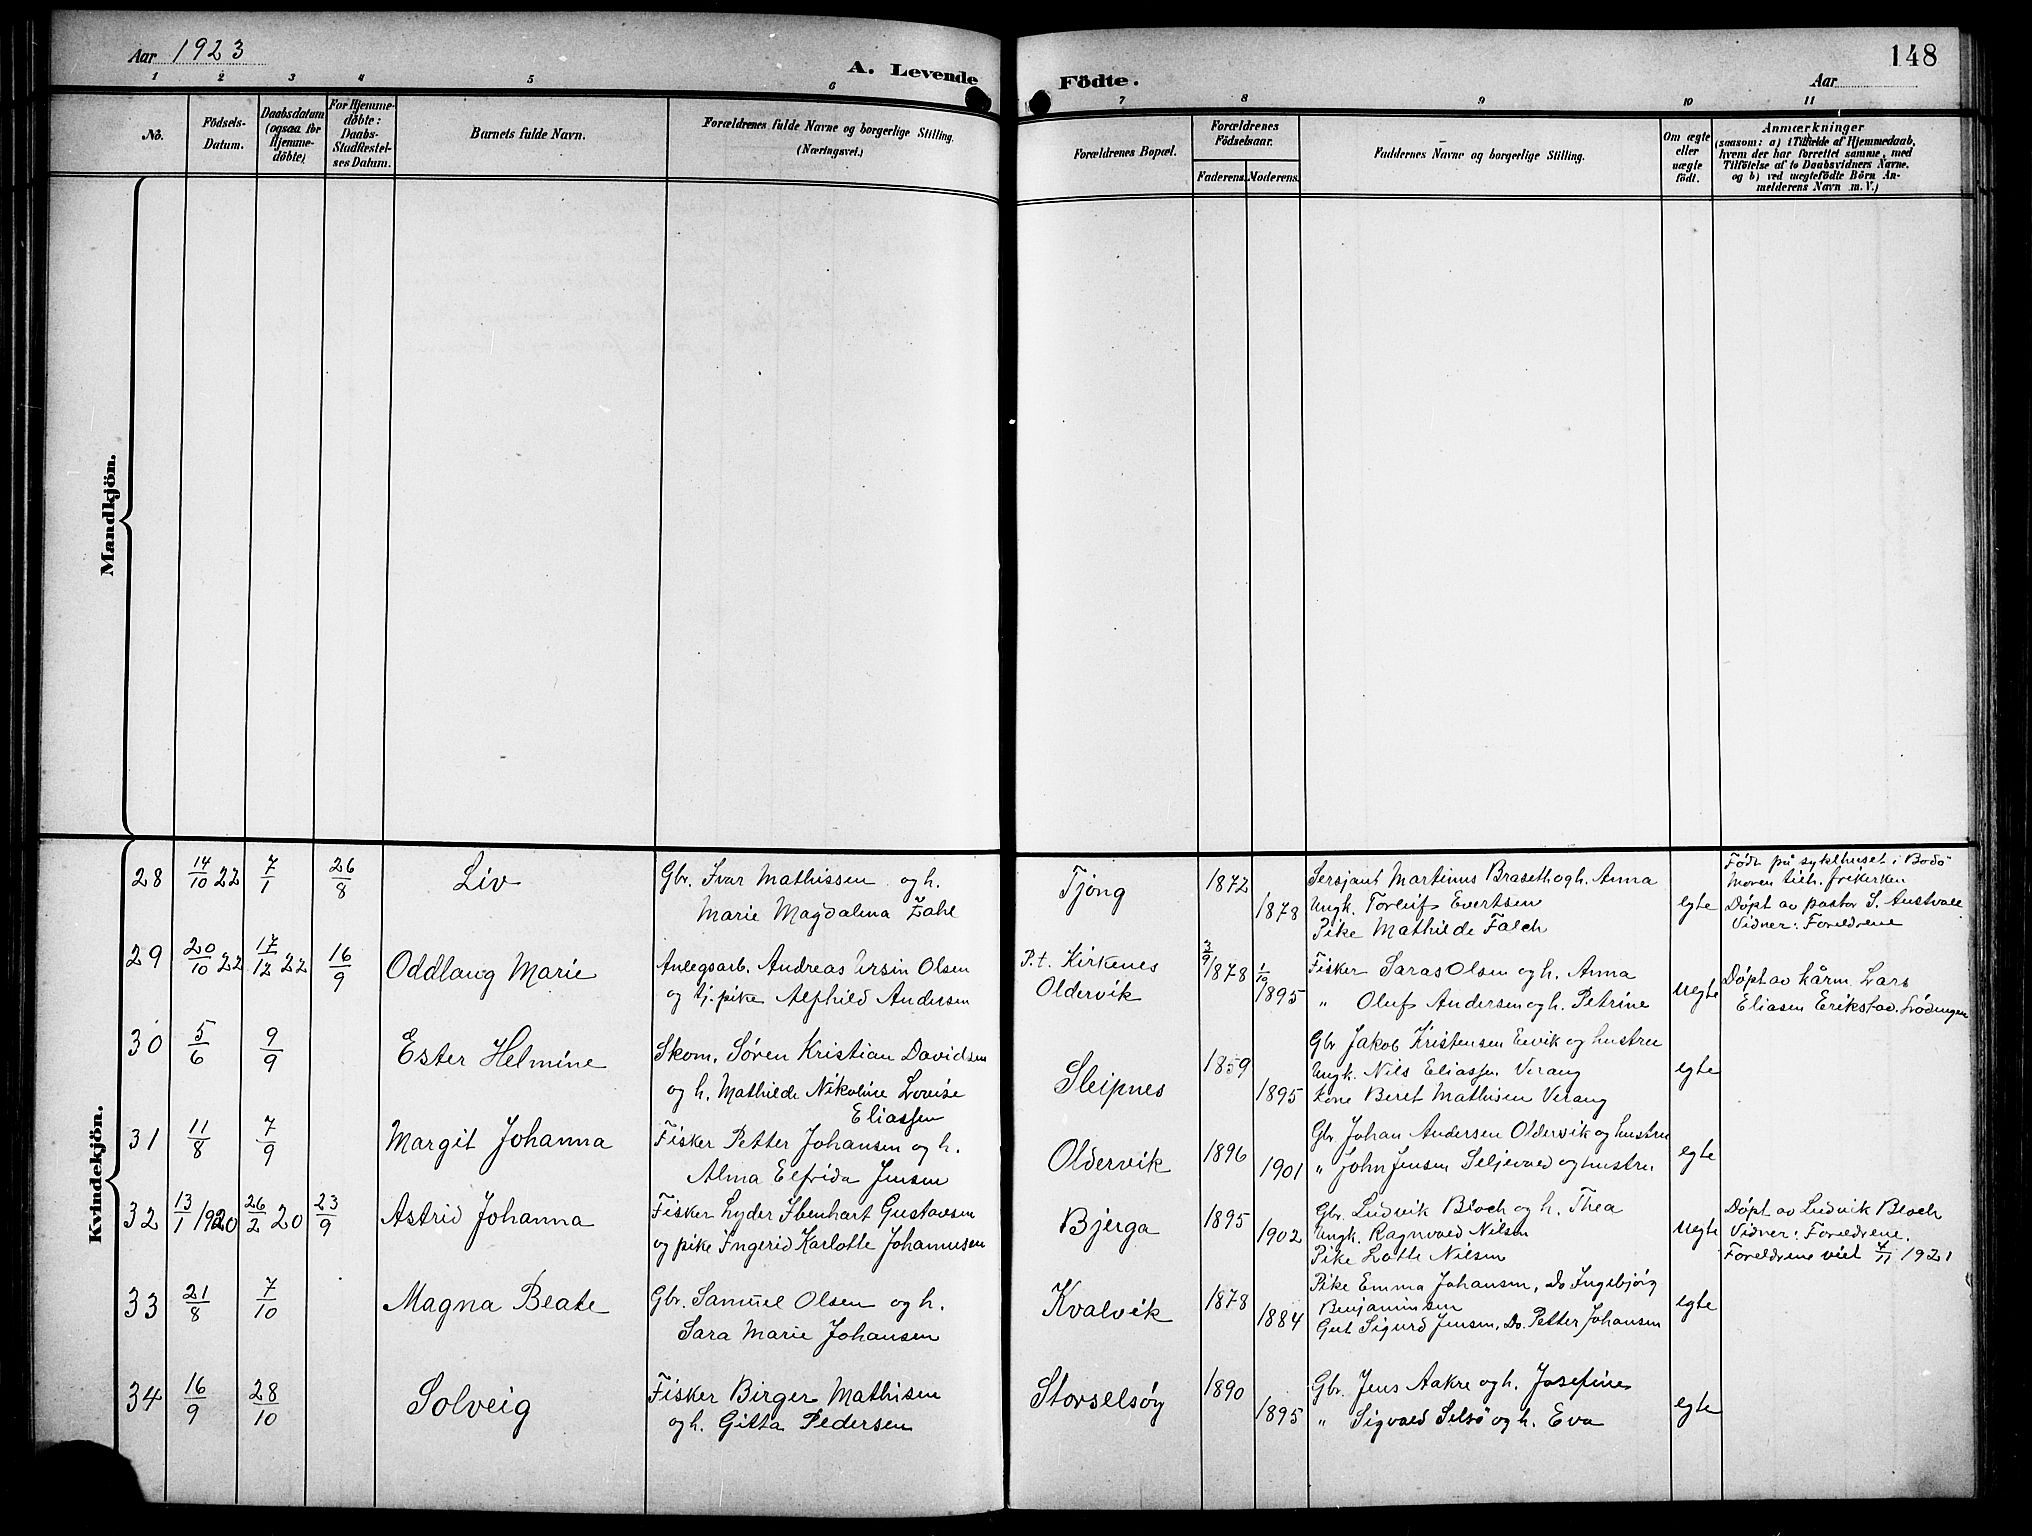 Aar 1923
A. Levende
Födte.
Aar
148
1 2 3 4 5 6 7 8 9 10 11
No.
Födsels-
Datum.
Daabsdatum
(ogsaa for
Hjemme-
döbte)
For Hjemme-
döbte:
Daabs-
Stadfæstel-
ses Datum.
Barnets fulde Navn.
Forældrenes fulde Navne og borgerlige Stilling.
(Næringsvei.)
Forældrenes Bopæl.
Forældrenes
Födselsaar.
Faderens.
Moderens.
Faddernes Navne og borgerlige Stilling.
Om ægte
eller
uægte
födt.
Anmærkninger
(saasom: a) i Tilfælde af Hjemmedaab,
hvem der har forrettet samme, med
Tilföielse af to Daabsvidners Navne.
og b) ved uægtefödte Börn An-
melderens Navn m. V.)
Mandkjön.
Kvindekjön.
28 14/10 22 7/1 26/8 Liv
Gbr. Ivar Mathissen og h.
Marie Magdalena Zahl
Tjong 1872 1878
Sersjant Martinus Braseth og h. Anna
Ungk. Torleif Evertsen
Pike Mathilde Falch
egte
Født på sykehuset i Bodö
Moren tilh. frikirken
Døpt av pastor S. Austvall
Vidner: Foreldrene
29 20/10 22 17/12 22 16/9 Oddlaug Marie
Anlegsarb. Andreas Ursin Olsen
og tj. pike Alfhild Andersen
P.t. Kirkenes
Oldervik
3/9 1878 1/10 1895
Fisker Saras Olsen og h. Anna
" Oluf Andersen og h. Petrine
uegte
Døpt av kårm. Lars
Eliasen Erikstad. Lødingen
30 5/6 9/9 Ester Helmine
Skom. Søren Kristian Davidsen
og h. Mathilde Nikoline Lovise
Eliassen
Sleipnes 1859 1895
Gbr Jakob Kristensen Envik og hustru
Ungk. Nils Eliassen Verang
Kone Beret Mathisen Verang
egte
31 11/8 7/9 Margit Johanna
Fisker Petter Johansen og h.
Alma Elfrida Jensen
Oldervik 1896 1901
Gbr Johan Andersen Oldervik og hustru
" John Jensen Seljevold og hustru
egte
32 13/1 1920 26/2 20 23/9 Astrid Johanna
Fisker Lyder Ibenhart Gustavsen
og pike Ingerid Karlotte Johannesen
Bjerga 1895 1902
Gbr. Ludvik Bloch og h. Thea
Ungk. Ragnvald Nilsen
Pike Lotte Nilsen
uegte
Døpt av Ludvik Bloch
Vidner: Foreldrene.
Foreldrene viet 4/11 1921
33 21/8 7/10 Magna Beate
Gbr. Samuel Olsen og h.
Sara Marie Johansen
Kvalvik 1878 1884
Pike Emma Johansen, Do Ingebjörg
Benjaminsen
Gut Sigurd Jensen, Do. Petter Johansen
egte
34 16/9 28/10 Solveig
Fisker Birger Mathisen
og h. Gitta Pedersen
Storselsøy 1890 1895
Gbr. Jens Aakre og h. Josefine
" Sigvald Selsö og h. Eva
egte